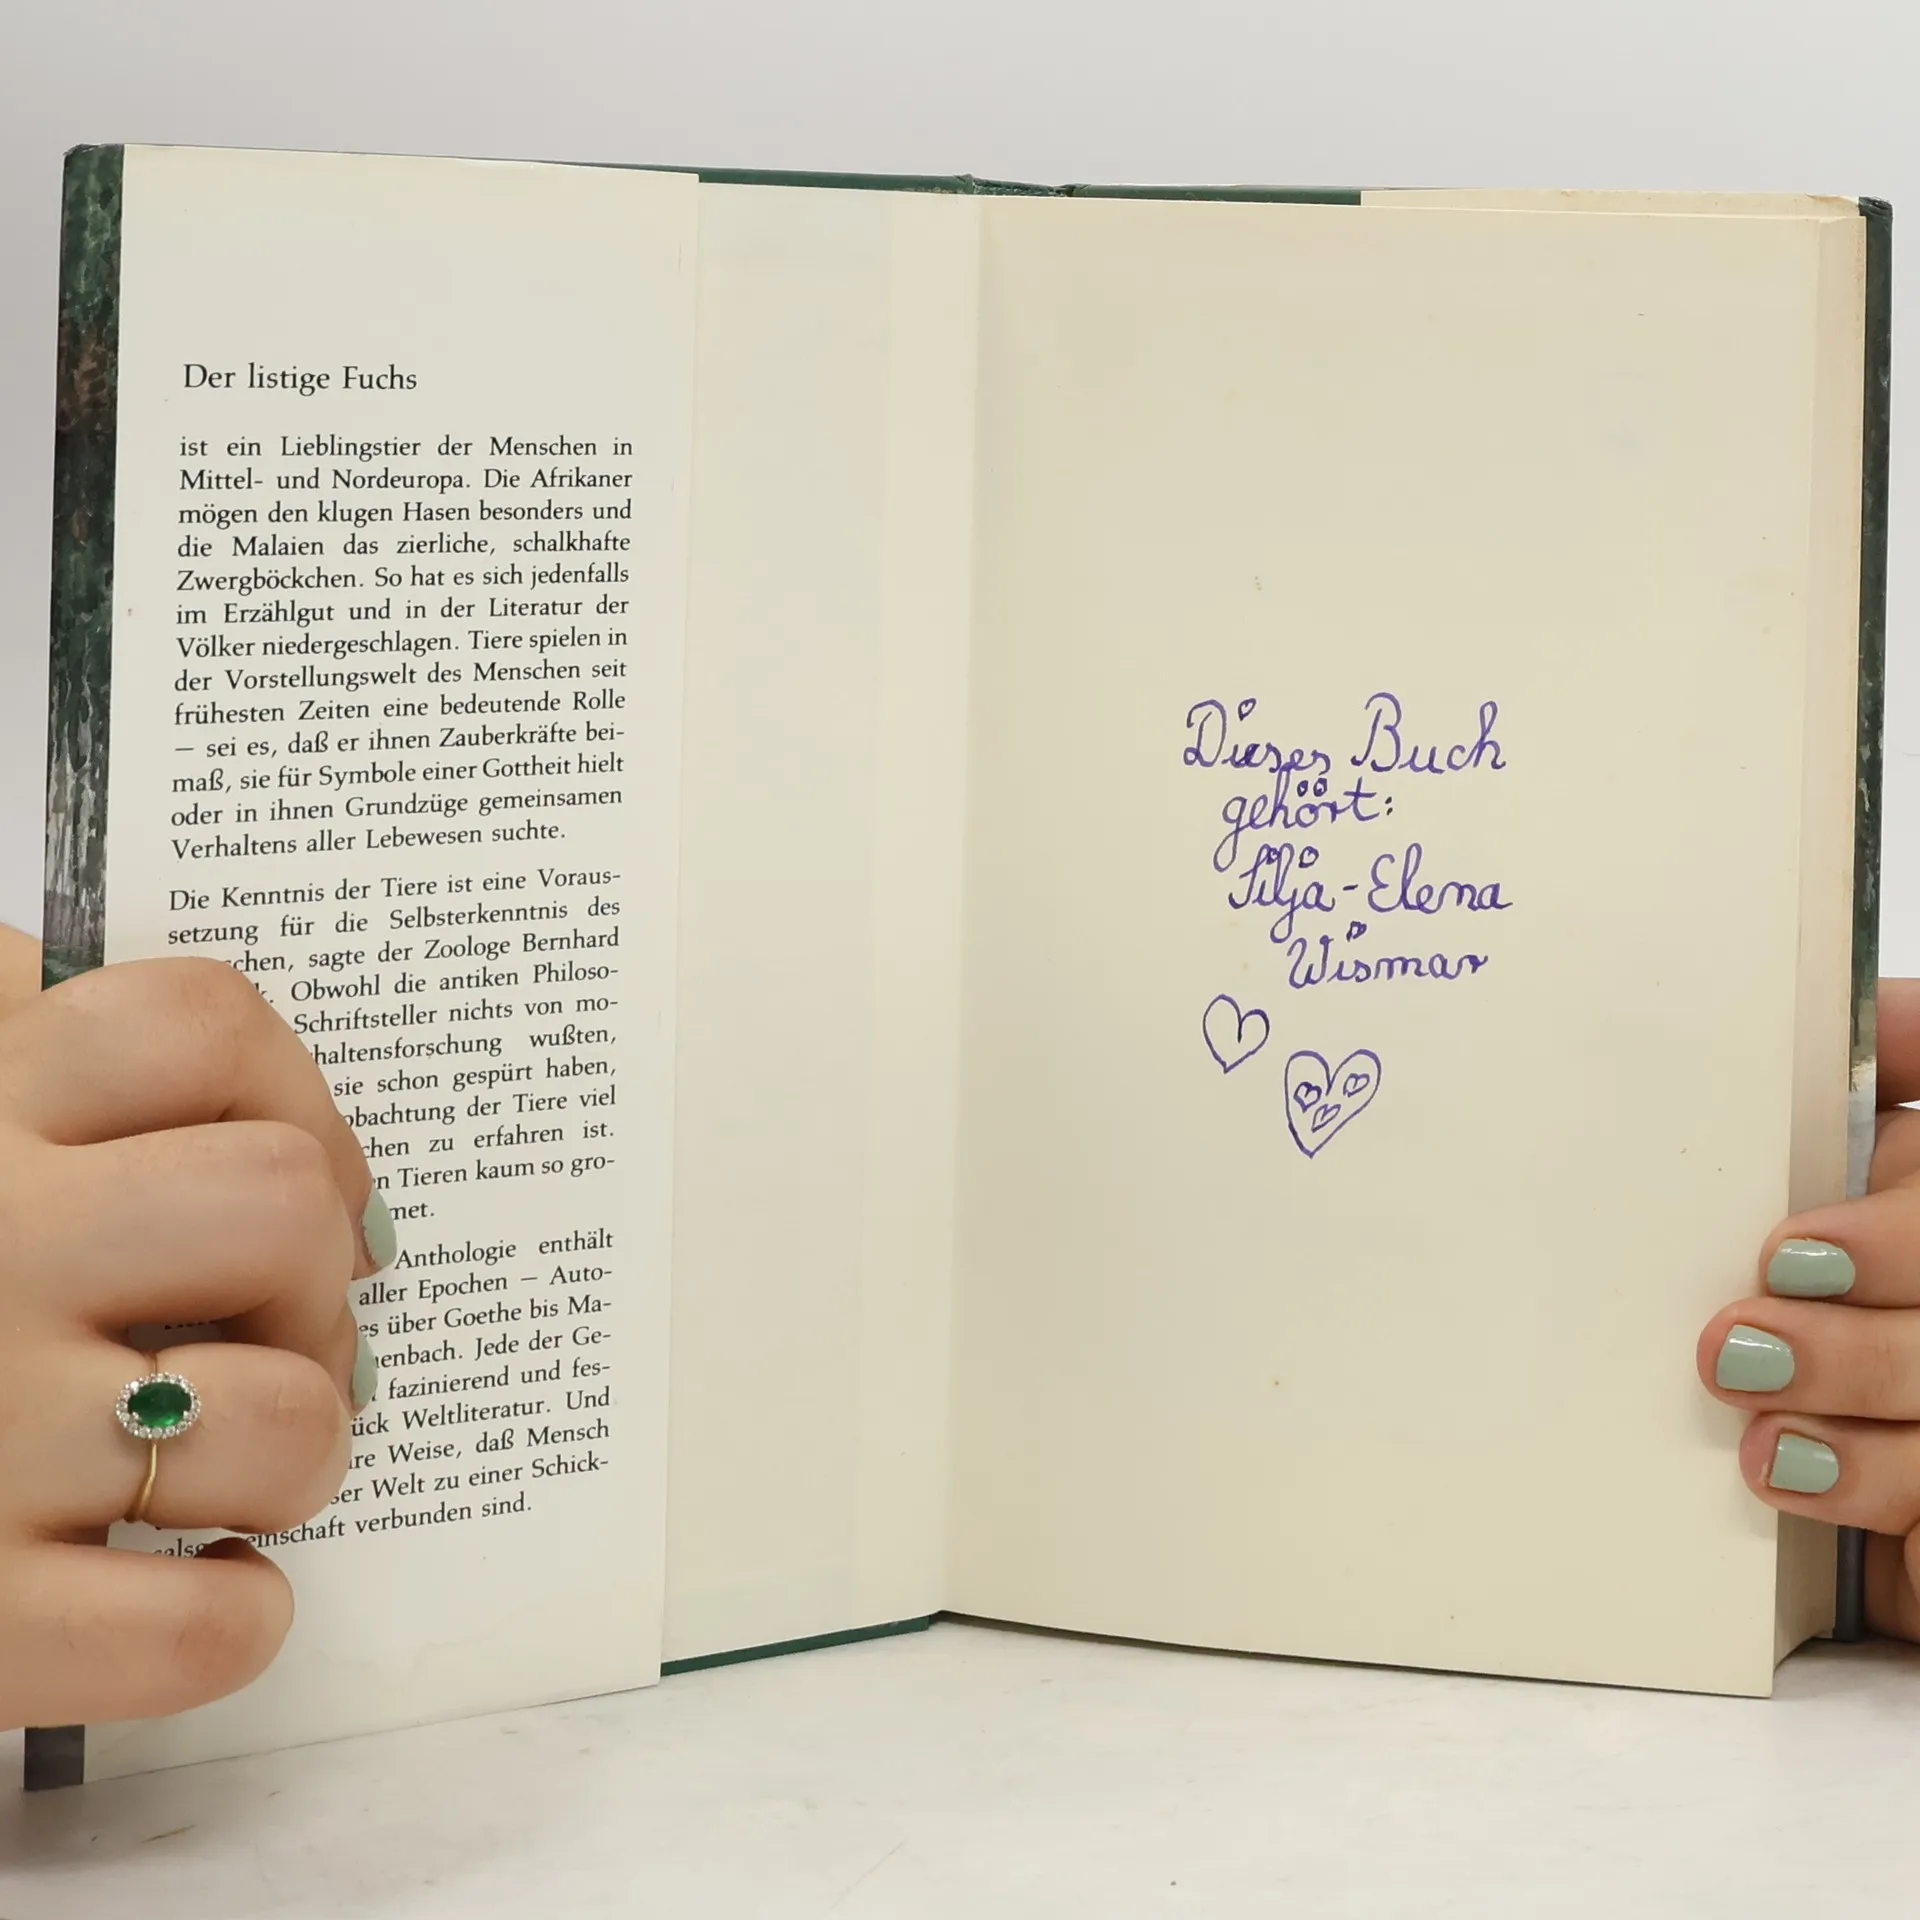 Der listige Fuchs
ist ein Lieblingstier der Menschen in
Mittel- und Nordeuropa. Die Afrikaner
mögen den klugen Hasen besonders und
die Malaien das zierliche, schalkhafte
Zwergböckchen. So hat es sich jedenfalls
im Erzählgut und in der Literatur der
Völker niedergeschlagen. Tiere spielen in
der Vorstellungswelt des Menschen seit
frühesten Zeiten eine bedeutende Rolle
— sei es, daß er ihnen Zauberkräfte bei-
maß, sie für Symbole einer Gottheit hielt
oder in ihnen Grundzüge gemeinsamen
Verhaltens aller Lebewesen suchte.
Die Kenntnis der Tiere ist eine Voraus-
setzung für die Selbsterkenntnis des
chen, sagte der Zoologe Bernhard
k. Obwohl die antiken Philoso-
Schriftsteller nichts von mo-
haltensforschung wußten,
sie schon gespürt haben,
obachtung der Tiere viel
chen zu erfahren ist.
n Tieren kaum so gro-
met.
Anthologie enthält
aller Epochen — Auto-
es über Goethe bis Ma-
enbach. Jede der Ge-
fazinierend und fes-
ück Weltliteratur. Und
re Weise, daß Mensch
ser Welt zu einer Schick-
einschaft verbunden sind.
Dieses Buch
gehört:
Silja-Elena
Wismar